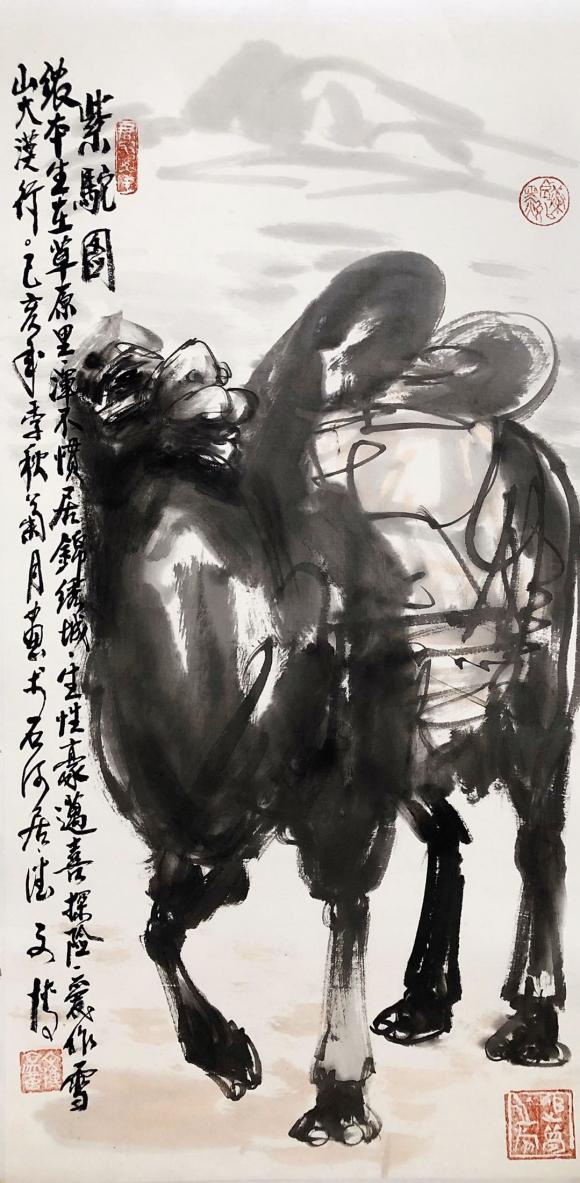 紫駝图
本生在草原里渾不慣居錦繡城生性豪邁喜探險爱作雪
山大漠行。己亥年季秋菊月画于石河居